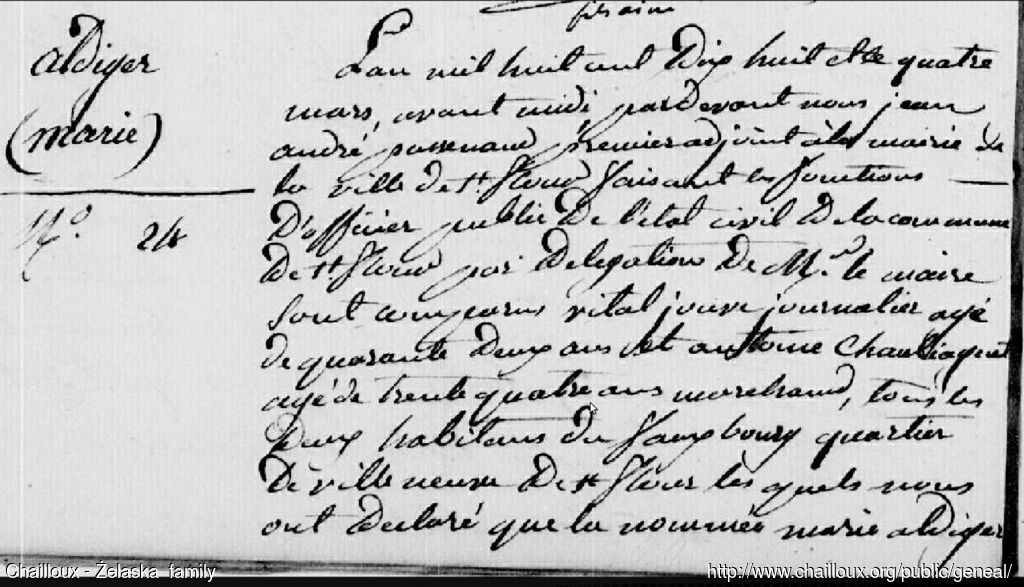 fils aîné
aldiger
(marie)
N.o 24
L'an mil huit cent Dix huit et le quatre
mars, avant midi pardevant nous jean
andré premier adjoint à la mairie de
la ville de st. flour faisant les fonctions
D'officier public De l'état civil De la commune
De st. flour par Delegation De Mr. le maire
sont comparus vital jouve journalier agé
de quarante Deux ans et antoine Chauliaguet
agé de trente quatre ans marchand, tous les
Deux habitans du faux bourg quartier
De villeneuve De st flour les quels nous
ont Declaré que la nommée marie aldiger
Chailloux - Żelaska family
http://www.chailloux.org/public/geneal/